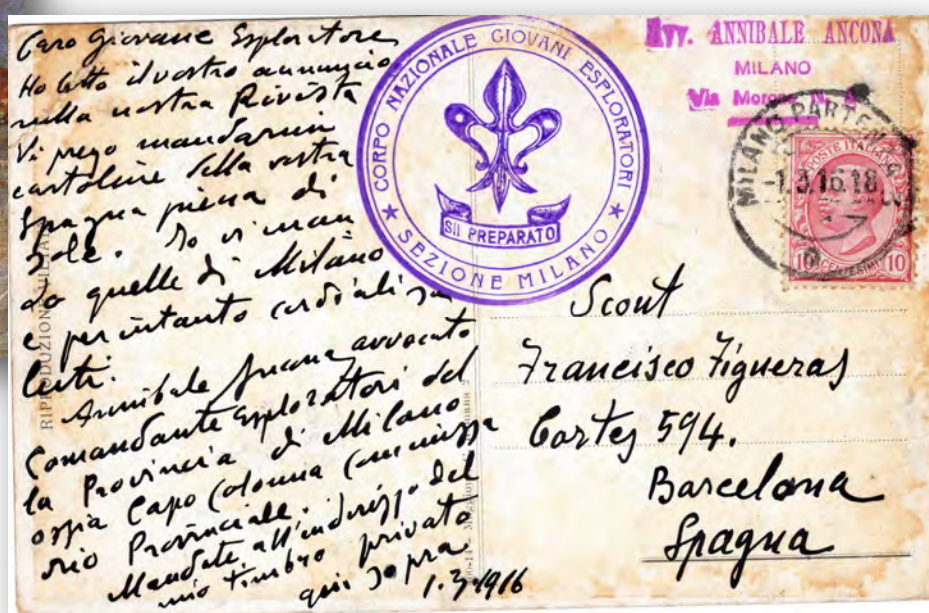 Caro Giovane Esploratore
Ho letto il vostro annuncio
sulla nostra Rivista
Vi prego mandarmi
cartoline della vostra
Spagna piena di
sole. Io vi man
do quelle di Milano
e per intanto cordiali sa
luti.
Annibale Ancona avvocato
Comandante Esploratori del
la Provincia di Milano
ossia Capo Colonna Commissa
rio Provinciale.
Mandate all'indirizzo del
mio timbro privato
qui sopra
1.3.1916
CORPO NAZIONALE GIOVANI ESPLORATORI
SII PREPARATO
★ SEZIONE MILANO ★
Avv. ANNIBALE ANCONA
MILANO
Via Morone N.
MILANO PARTENZA
-1.3.16.18
POSTE ITALIANE
10 CENTESIMI 10
Scout
Francisco Figueras
Cortes 594.
Barcelona
Spagna
RIPRODUZIONE